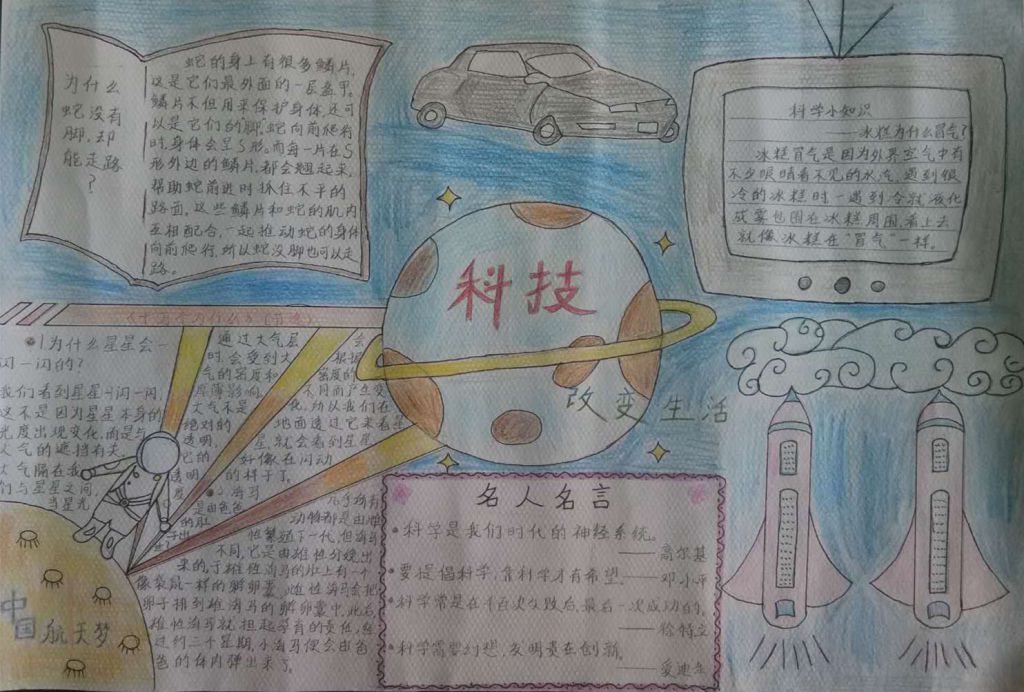 为什么
蛇没有
脚,却
能走路
?
蛇的身上有很多鳞片,
这是它们最外面的一层盔甲。
鳞片不但用来保护身体,还可
以是它们的"脚",蛇向前爬行
时,身体会呈S形。而每一片在S
形外边的鳞片,都会翘起来,
帮助蛇前进时抓住不平的
路面。这些鳞片和蛇的肌肉
互相配合,一起推动蛇的身体
向前爬行,所以蛇没脚也可以走
路。
科学小知识
——冰糕为什么冒气?
冰糕冒气是因为外界空气中有
不少眼睛看不见的水汽,遇到很
冷的冰糕时,一遇到冷就液化
成雾包围在冰糕周围,看上去
就像冰糕在"冒气"一样。
科技
改变生活
1.为什么星星会一
闪一闪的?
我们看到星星闪一闪,
这不是因为星星本身的
光度出现变化,而是与
大气的遮挡有关。
大气隔在我
们与星星之间,
当星光
通过大气层
时,会受到大
气的密度和
厚薄影响。
大气不是
绝对的
透明,
它的
透明
度
会
根据
密度的
不同而产生变
化。所以我们在
地面透过它来看星
星,就会看到星星
好像在闪动
的样子了。
2.海马
是由爸爸
的肚
几乎所有
动物都是由雌
性繁殖下一代,但海马
不同,它是由雄性分娩出
来的。于雄性海马的肚上有一个
像袋鼠一样的孵卵囊,雌性海马会把
卵子排到雄海马的孵卵囊中,此后
雄性海马就担起孕育的责任,经
过约三个星期,小海马便会由爸
爸的体内弹出来了。
中国航天梦
名人名言
科学是我们时代的神经系统。
——高尔基
要提倡科学,靠科学才有希望。——邓小平
科学常是在千百次失败后,最后一次成功的。
——徐特立
科学需要幻想,发明贵在创新。
——爱迪生